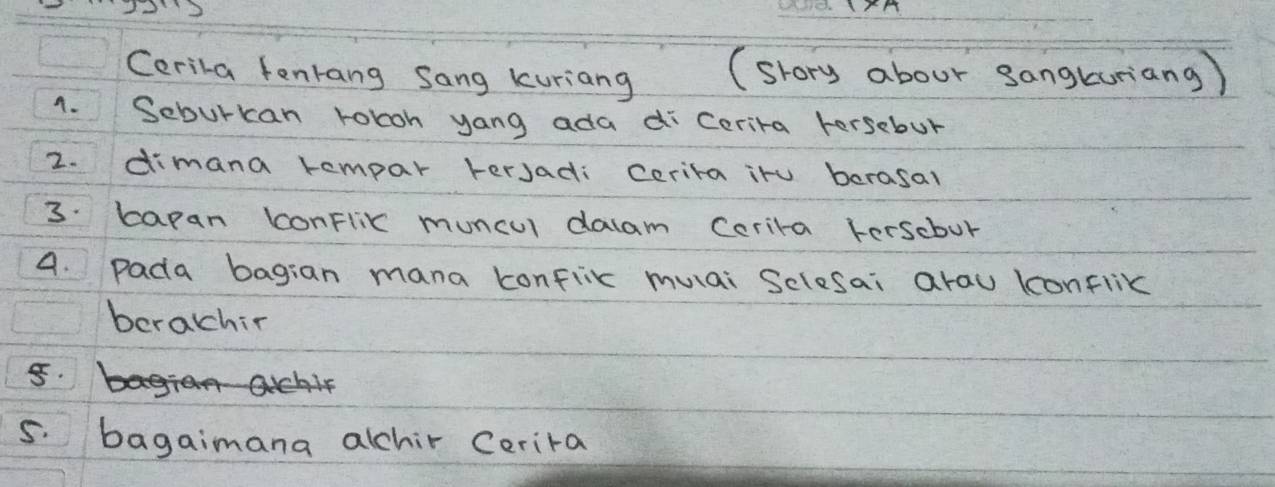 Cerita tentang Sang kuriang (Story about sangkuriang)
1. Seburkan tokoh yang ada di Cerita tersebut
2. dimana tempat terjadi Cerita itu berasal
3. kapan konflik muncul dalam Cerita tersebut
4. pada bagian mana konflik mulai Selesai atau konflik
berakhir
5. bagian akhir
5. bagaimana akhir Cerita